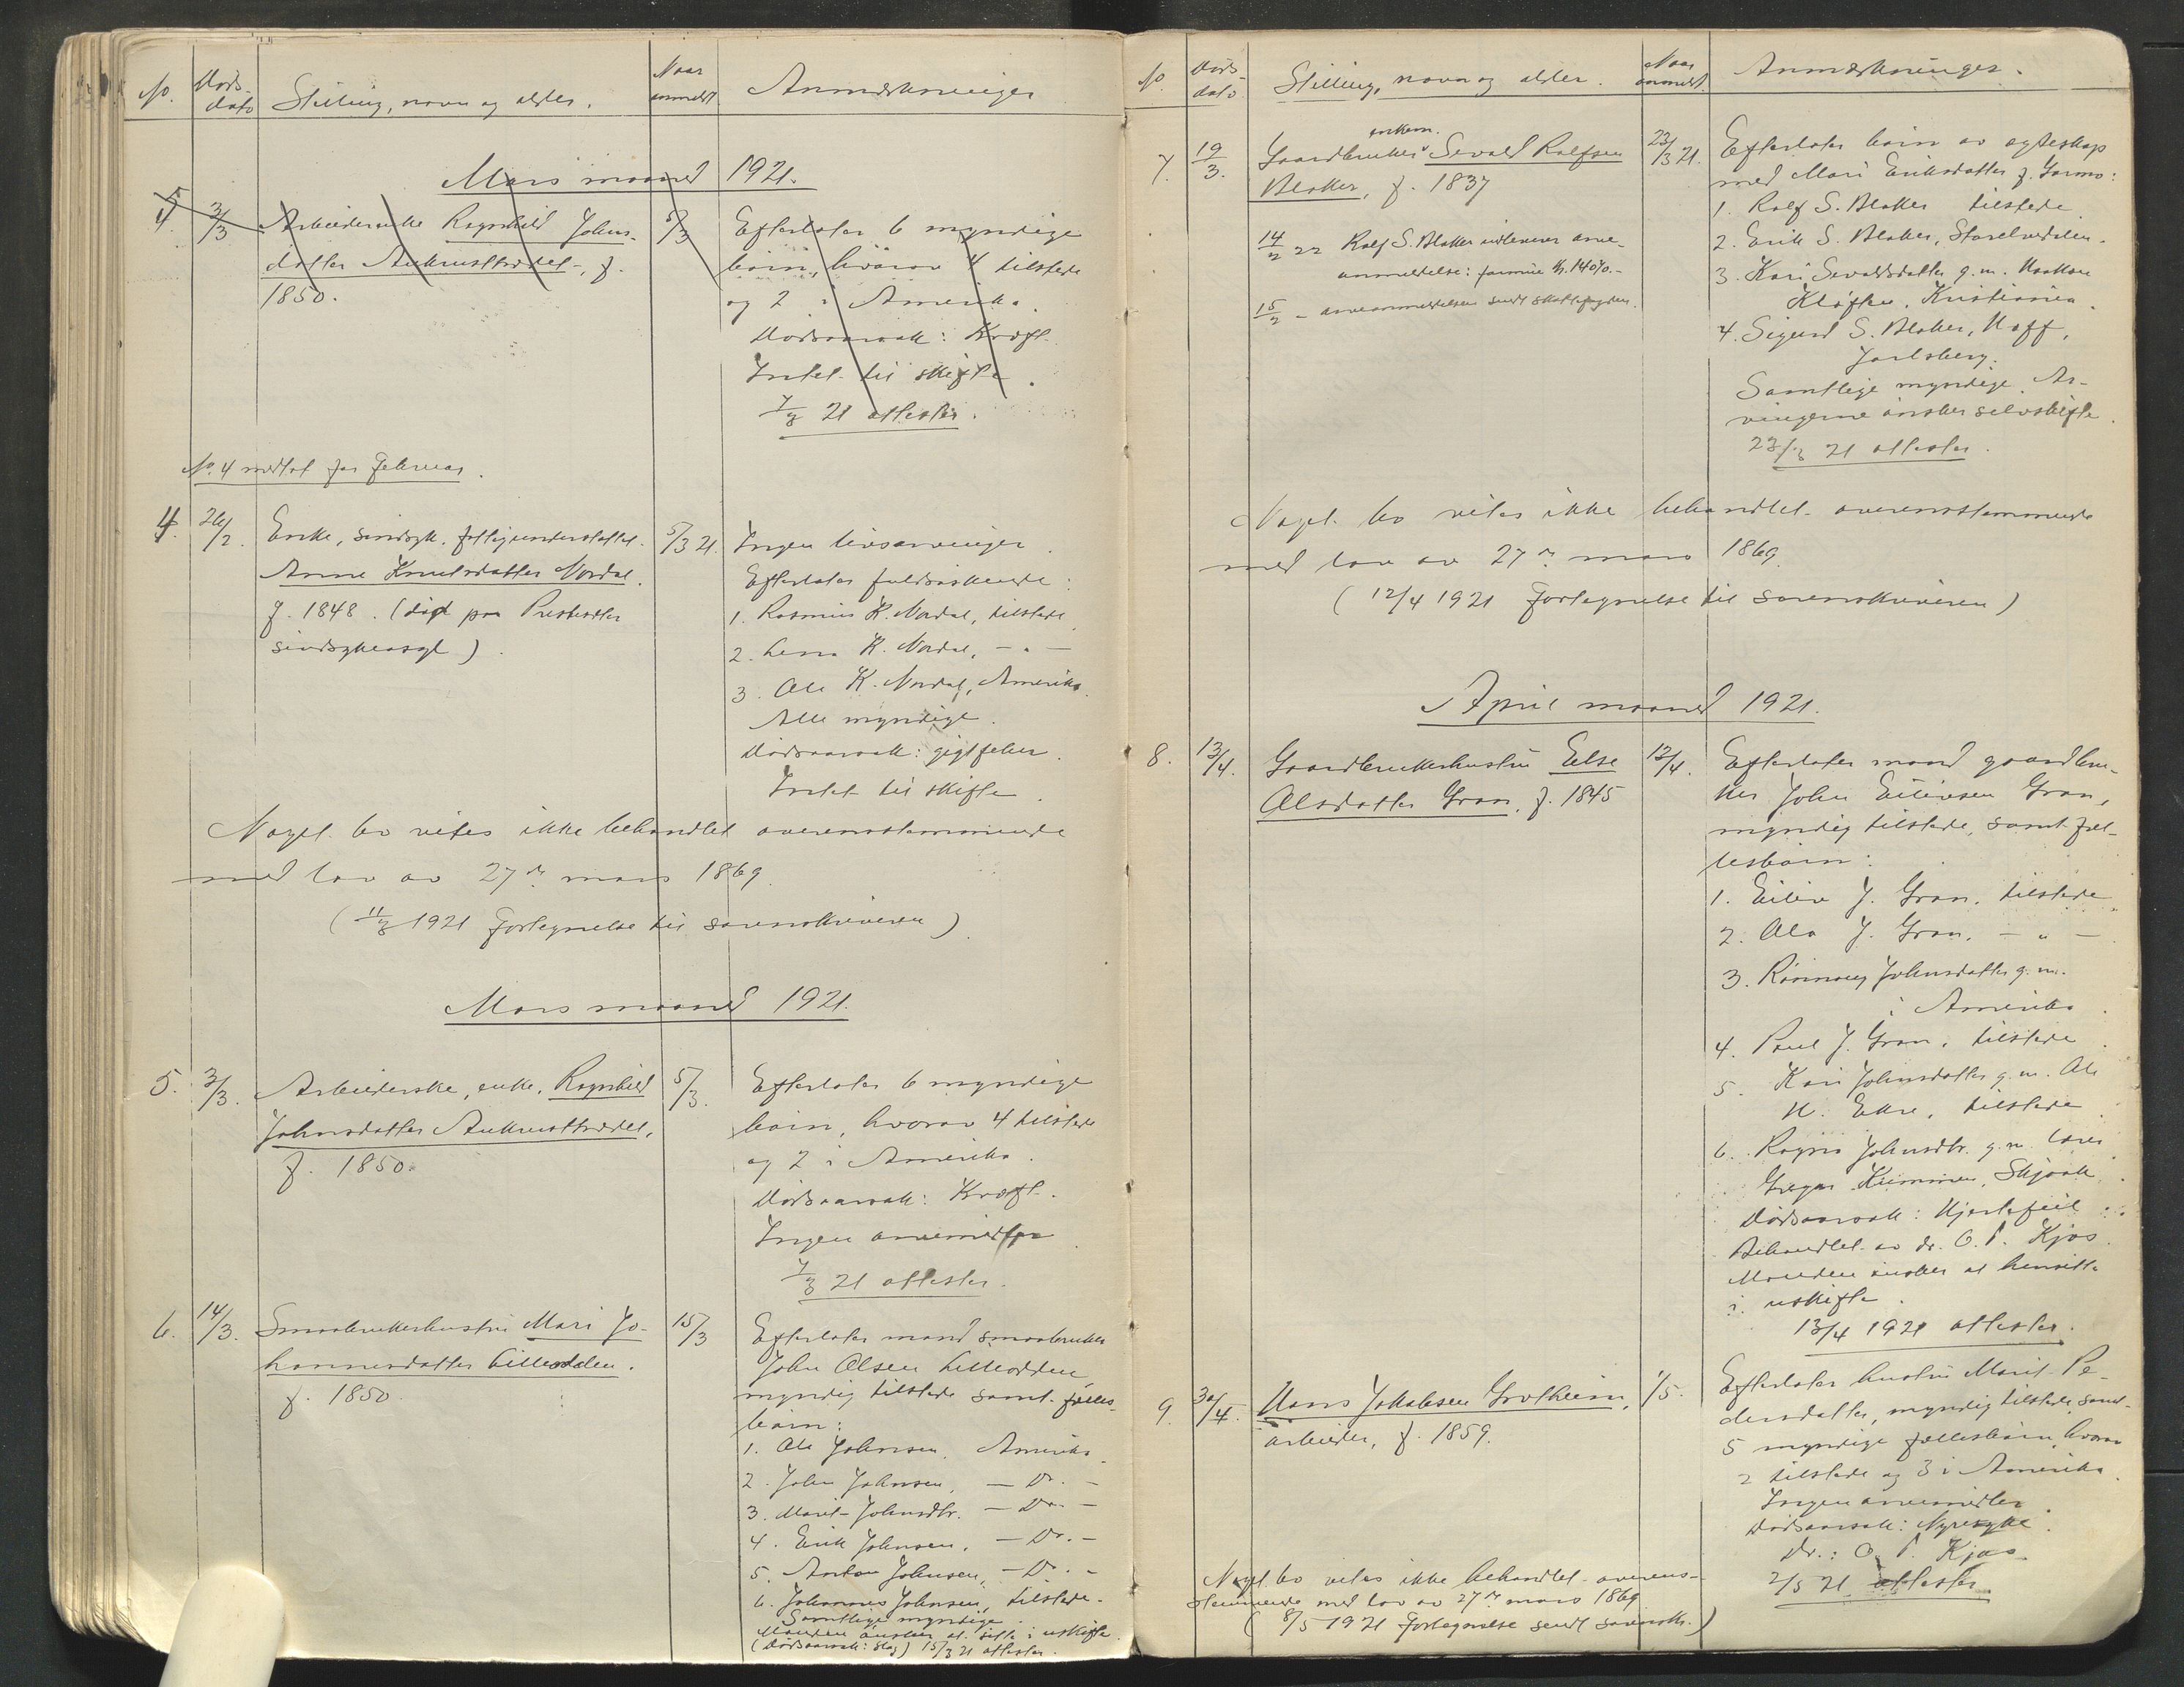 No. Døds- Stilling, navn og alder. Naar Anmerkninger
dato anmeldt
Mars maaned 1921.
4. 3/3 Arbeiderenke Ragnhild Johns- 5/3
datter Aukrusttrædet, f.
1850.
Efterlater 6 myndige
børn, hvorav 4 tilstede
og 2 i Amerika.
Dødsaarsak: Kræft.
Intet til skifte.
7/3 21 attester.
No. 4 medtat for Februar.
4. 26/2. Enke, sindsyk, fattigunderstøttet 5/3 21.
Anne Knutsdatter Nordal.
f. 1848. (død paa Presteseter
sindsykeasyl).
Ingen livsarvinger.
Efterlater fuldsøskende:
1. Rasmus K. Nordal, tilstede
2. Lena K. Nordal, — " —
3. Ole K. Nordal, Amerika.
Alle myndige.
Dødsaarsak: gigtfeber.
Intet til skifte.
Noget bo vites ikke behandlet overensstemmende
med lov av 27de mars 1869.
(11/3 1921 Fortegnelse til sorenskriveren)
Mars maaned 1921.
5. 3/3. Arbeiderske, enke, Ragnhild 5/3.
Johnsdatter Aukrusttrædet,
f. 1850.
Efterlater 6 myndige
børn, hvorav 4 tilstede
og 2 i Amerika.
Dødsaarsak: Kræft.
Ingen arvemidler
7/3 21 attester.
6. 14/3. Smaabrukerhustru Mari Jo- 15/3
hannesdatter Lilleodden.
f. 1850.
Efterlater mand smaabruker
John Olsen Lilleodden,
myndig tilstede samt fælles-
børn:
1. Ole Johnsen, Amerika.
2. John Johnsen, — Do. —
3. Marit Johnsdtr. — Do. —
4. Erik Johnsen, — Do. —
5. Anton Johnsen, — Do. —
6. Johannes Johnsen, tilstede.
Samtlige myndige.
Manden ønsker at sitte i uskifte.
(Dødsaarsak: slag) 15/3 21 attester.
No. Døds- Stilling, navn og alder. Naar Anmerkninger.
dato anmeldt.
enkem.
7. 19/3. Gaardbruker Sevald Rolfsen 23/3 21.
Blaker, f. 1837
14/2 22 Rolf S. Blaker indleverer arve-
anmeldelse: formue Kr. 1400.-
15/2 - arveanmeldelsen sendt skattefogden.
Efterlater børn av egteskap
med Mari Eriksdatter f. Garmo:
1. Rolf S. Blaker tilstede
2. Erik S. Blaker, Storelvedalen.
3. Kari Sevaldsdatter g.m. Haakon
Kløften, Kristiania.
4. Sigurd S. Blaker, Hoff,
Jarlsberg.
Samtlige myndige. Ar-
vingerne ønsker selvskifte.
23/3 21 attester.
Noget bo vites ikke behandlet overensstemmende
med lov av 27de mars 1869.
(12/4 1921 Fortegnelse til sorenskriveren)
April maaned 1921.
8. 13/4. Gaardbrukerhustru Eelse 13/4.
Olsdatter Gran, f. 1845
Efterlater mand gaardbru-
ker John Eilivsen Gran,
myndig tilstede, samt fæl-
lesbørn:
1. Eiliv J. Gran, tilstede
2. Ola J. Gran, — " —
3. Rønnaug Johnsdatter g.m.
i Amerika.
4. Paul J. Gran, tilstede.
5. Kari Johnsdatter g.m. Ole
H. Ekre, tilstede.
6. Ragna Johnsdtr. g.m. lærer
Gregar Kummen, Skjaak.
Dødsaarsak: Hjertefeil
Behandlet av dr. O. P. Kjos.
Manden ønsker at hensitte
i uskifte.
13/4 1921 attester.
9. 30/4. Hans Jakobsen Grotheim, 1/5.
arbeider, f. 1859.
Efterlater hustru Marit Pe-
dersdatter, myndig tilstede, samt
5 myndige fællesbørn, hvorav
2 tilstede og 3 i Amerika.
Ingen arvemidler.
Dødsaarsak: Nyresyke.
Dr.: O. P. Kjos
2/5 21 attester.
Noget bo vites ikke behandlet overens-
stemmende med lov av 27de mars 1869
(8/5 1921 Fortegnelse sendt sorenskr.)